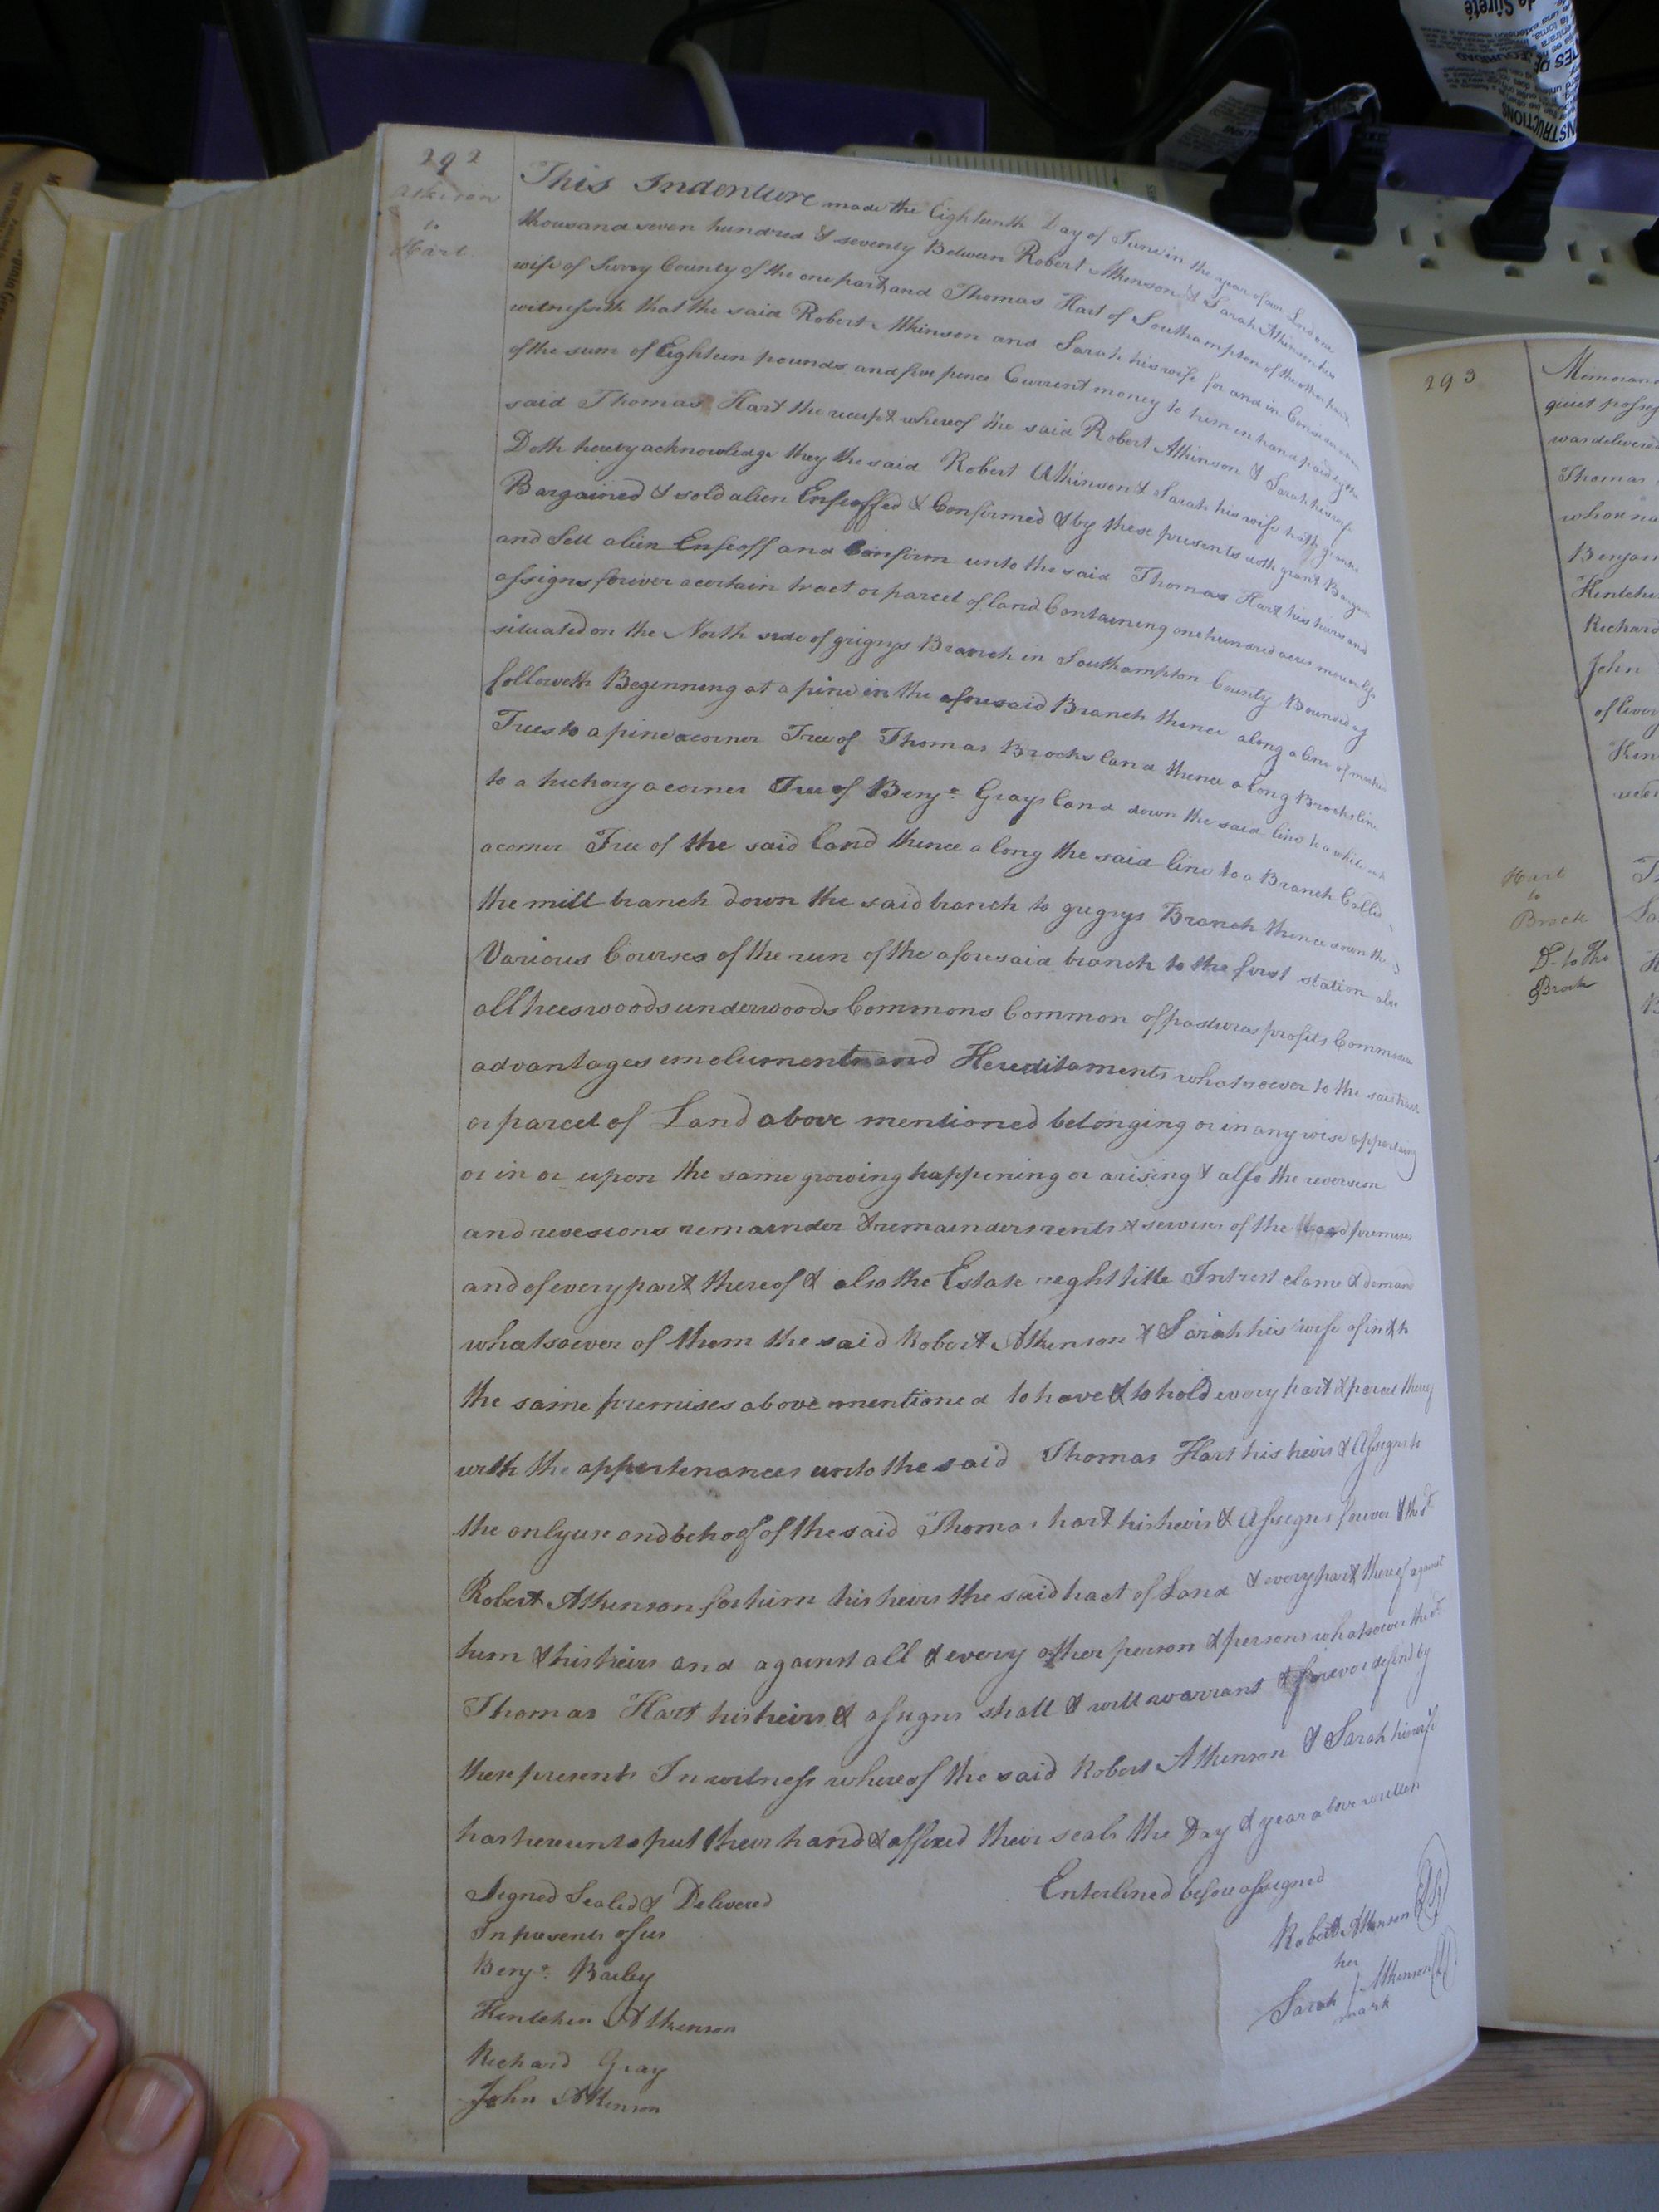 292
Atkinson
to
Hart
This Indenture made the Eighteenth Day of June in the year of our Lord one
thousand seven hundred & seventy Between Robert Atkinson & Sarah Atkinson his
wife of Surry County of the one part and Thomas Hart of Southampton of the other part
witnesseth that the said Robert Atkinson and Sarah his wife for and in Consideration
of the sum of Eighteen pounds and five pence Current money to them in hand paid by the
said Thomas Hart the receipt whereof the said Robert Atkinson & Sarah his wife
Doth hereby acknowledge they the said Robert Atkinson & Sarah his wife hath granted
Bargained & sold alien Enfeoffed & Confirmed & by these presents doth grant Bargain
and Sell alien Enfeoff and Confirm unto the said Thomas Hart his heirs and
assigns forever a certain tract or parcel of land Containing one hundred acres more or less
situated on the North side of grigrys Branch in Southampton County Bounded as
followeth Beginning at a pine in the aforesaid Branch thence along a line of marked
Trees to a pine a corner Tree of Thomas Brocks land thence along Brocks line
to a hickory a corner Tree of Benja. Grays land down the said line to a white oak
a corner Tree of the said land thence along the said line to a Branch Called
the mill branch down the said branch to gugrys Branch thence down the
Various Courses of the run of the aforesaid branch to the first station also
all trees woods underwoods Commons Common of pastures profits Commodities
advantages emoluments and Hereditaments whatsoever to the said tract
or parcel of Land above mentioned belonging or in any wise appertaing
or in or upon the same growing happening or arising & also the reversion
and revesions remainder & remainders rents & services of the said premises
and of every part thereof & also the Estate reght title Intrest clame & demand
whatsoever of them the said Robert Atkinson & Sarah his wife of in & to
the same premises above mentioned to have & to hold every part & parcel thereof
with the appertenances unto the said Thomas Hart his heirs & Assigns to
the only use and behoof of the said Thomas hart his heirs & Assigns forever & the sd.
Robert Atkinson for him his heirs the said tract of Land & every part thereof against
him & his heirs and against all & every other person & persons whatsoever the sd.
Thomas Hart his heirs & assigns shall & will warrant & forever defend by
these presents In witness whereof the said Robert Atkinson & Sarah his wife
has hereunto put their hand & affixed their seals the Day & year above written
Signed Sealed & Delivered
Enterlined before assigned
In presents of us
Robert Atkinson
Benja. Bailey
her
Sarah Atkinson
mark
Atkinson
Richard Gray
John Atkinson
293
quiet
was delivered
Thomas
Richard
John
of
Hart
to
Brock
Do. to Tho
Brock